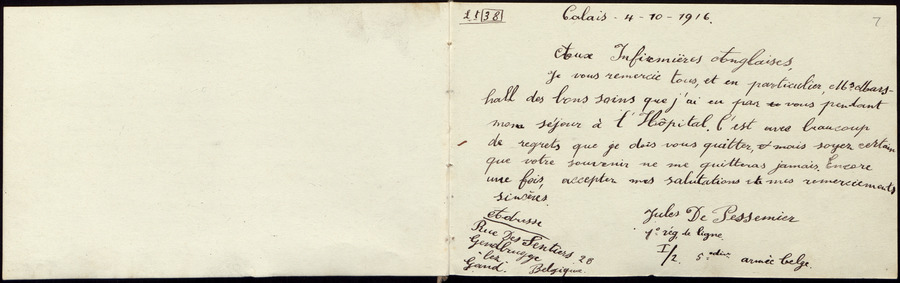 38
Calais - 4 - 10 - 1916.
7
Aux Infirmières Anglaises,
Je vous remercie tous, et en particulier, Ms Mars-
hall des bons soins que j'ai eu par vous pendant
mon séjour à l'Hôpital. C'est avec beaucoup
de regrets que je dois vous quitter, mais soyez certain
que votre souvenir ne me quitteras jamais. Encore
une fois, accepter mes salutations et mes remerciements
sincères.
Adresse
Rue Des Sentiers 28
Gendbrugge
lez
Gand. Belgique.
Jules De Pessemier
1e rég. de ligne.
I/2. 5e armée belge.